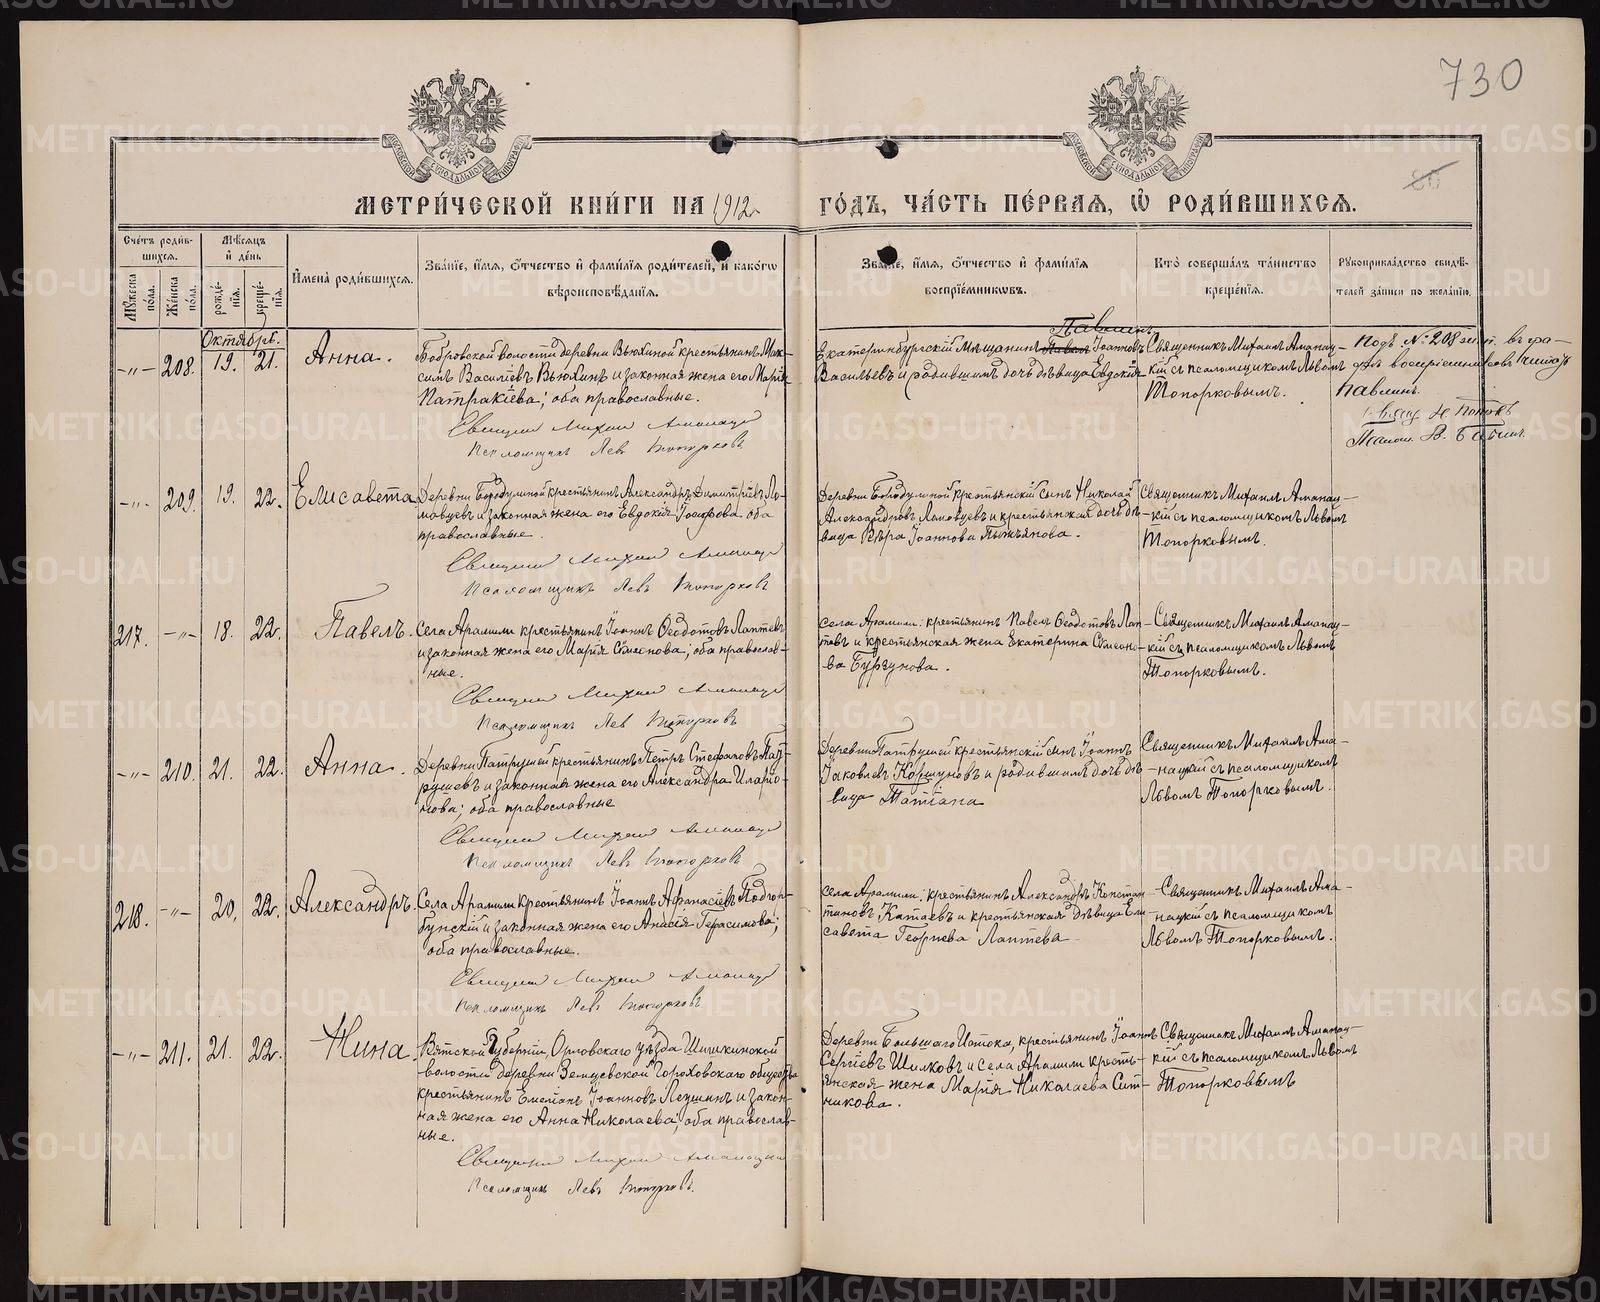 730
80
МЕТРИЧЕСКОЙ КНИГИ НА 1912 г. ГОДЪ, ЧАСТЬ ПЕРВАЯ, Ѡ РОДИВШИХСЯ.
Счетъ родившихся.
Мужеска пола.
Женска пола.
Мѣсяцъ и день
рожденія.
крещенія.
Имена родившихся.
Званіе, имя, отчество и фамилія родителей, и какогω вѣроисповѣданія.
Званіе, имя, отчество и фамилія воспріемниковъ.
Кто совершалъ таинство крещенія.
Рукоприкладство свидѣтелей записи по желанію.
Октябрь.
-„- 208. 19. 21. Анна.
Бобровской волости деревни Вьюхиной крестьянинъ Мак-
симъ Василіевъ Вьюхинъ и законная жена его Марія
Патракіева; оба православные.
Священникъ Михаил Аманацкій
Псаломщикъ Левъ Топорковъ
Павлинъ
Екатеринбургскій мѣщанинъ Павелъ Іоанновъ
Васильевъ и родившимъ дочь дѣвица Евдокія
Священникъ Михаилъ Аманац-
кій съ псаломщикомъ Львомъ
Топорковымъ.
Подъ № 208 въ гра-
фѣ воспріемниковъ читать
Павлинъ.
-„- 209. 19. 22. Елисавета
Деревни Бородулиной крестьянинъ Александръ Димитріевъ Ло-
мовцевъ и законная жена его Евдокія Іосифова оба
православные.
Священникъ Михаил Аманацкій
Псаломщикъ Левъ Топорковъ
Деревни Бородулиной крестьянскій сынъ Николай
Александровъ Ломовцевъ и крестьянская дочь дѣ-
вица Вѣра Іоаннова Пыжьянова.
Священникъ Михаилъ Аманац-
кій съ псаломщикомъ Львомъ
Топорковымъ.
217. -„- 18. 22. Павелъ.
Села Арамили крестьянинъ Іоаннъ Ѳеодотовъ Лаптевъ
и законная жена его Марія Сѵмеонова; оба православ-
ные.
Священникъ Михаил Аманацкій
Псаломщикъ Левъ Топорковъ
Села Арамили: крестьянинъ Павелъ Ѳеодотовъ Лап-
тевъ и крестьянская жена Екатерина Сѵмеоно-
ва Бургунова.
Священникъ Михаилъ Аманац-
кій съ псаломщикомъ Львомъ
Топорковымъ.
-„- 210. 21. 22. Анна.
Деревни Патрушей крестьянинъ Петръ Стефановъ Пат-
рушевъ и законная жена его Александра Иларіо-
нова; оба православные
Священникъ Михаил Аманацкій
Псаломщикъ Левъ Топорковъ
Деревни Патрушей крестьянскій сынъ Іоаннъ
Іаковлевъ Коршуновъ и родившимъ дочь дѣ-
вица Татіана
Священникъ Михаилъ Ама-
нацкій съ псаломщикомъ
Львомъ Топорковымъ.
218. -„- 20. 22. Александръ.
Села Арамили крестьянинъ Іоаннъ Аѳанасіевъ Подгор-
бунскій и законная жена его Герасимова;
оба православные.
Священникъ Михаил Аманацкій
Псаломщикъ Левъ Топорковъ
Села Арамили: крестьянинъ Александръ Констан-
тиновъ Катаевъ и крестьянская дѣвица Ели-
савета Георгіева Лаптева
Священникъ Михаилъ Ама-
нацкій съ псаломщикомъ
Львомъ Топорковымъ.
-„- 211. 21. 22. Нина.
Вятской Губерніи, Орловскаго уѣзда Шишкинской
волости деревни Земцовской Гороховскаго общества
крестьянинъ Емеліанъ Іоанновъ и закон-
ная жена его Анна Николаева; оба православ-
ные.
Священникъ Михаил Аманацкій
Псаломщикъ Левъ Топорковъ.
Деревни Большаго Истока, крестьянинъ Іоаннъ
Сергіевъ Шилковъ и села Арамили кресть-
янская жена Марія Николаева Сит-
никова.
Священникъ Михаилъ Аманац-
кій съ псаломщикомъ Львомъ
Топорковымъ
METRIKI.GASO-URAL.RU